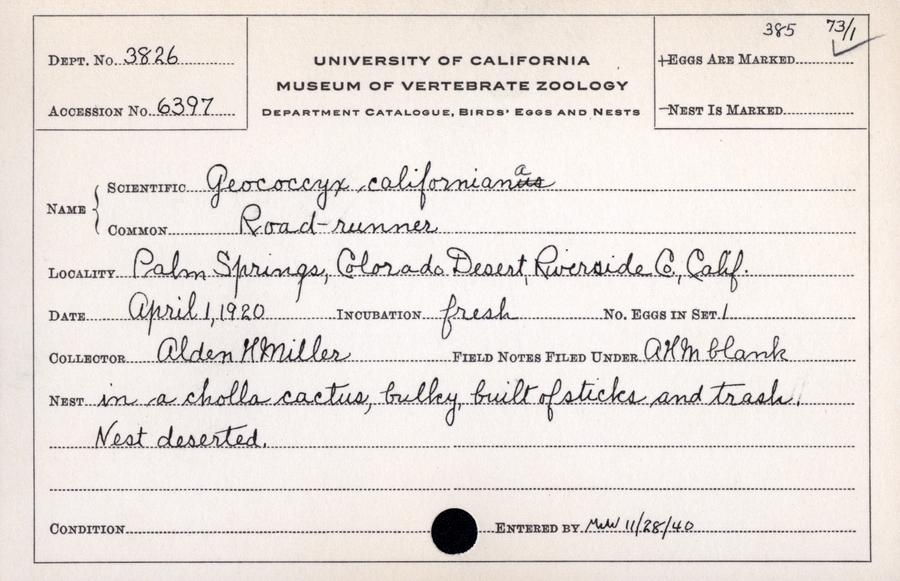 385 73/1
Dept. No. 3826
UNIVERSITY OF CALIFORNIA
MUSEUM OF VERTEBRATE ZOOLOGY
Department Catalogue, Birds' Eggs and Nests
Eggs Are Marked
Accession No. 6397
Nest Is Marked
Name
Scientific Geococcyx californianus a
Common Road-runner
Locality Palm Springs, Colorado Desert, Riverside Co., Calif.
Date April 1, 1920 Incubation fresh No. Eggs in Set 1
Collector Alden H Miller Field Notes Filed Under AHM blank
Nest in a cholla cactus, bulky, built of sticks and trash.
Nest deserted.
Condition Entered by 11/28/40